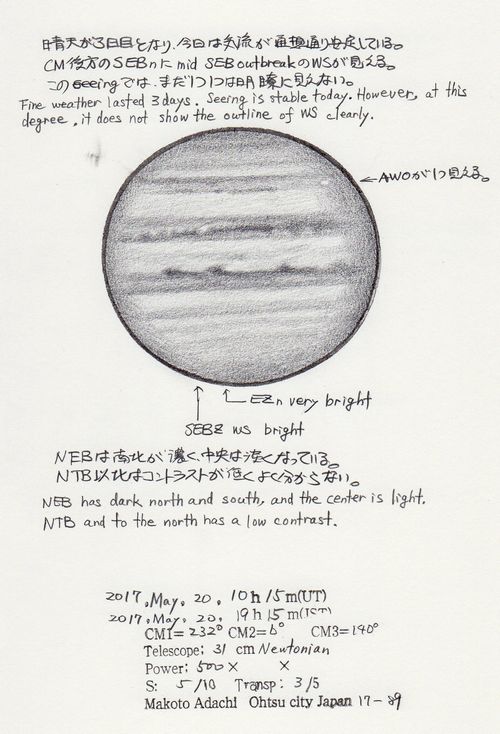 晴天が3日目となり、今日は気流が予想通り安定している。
CM後方のSEBnにmid SEB outbreakのWSが見える。
このSeeingでは、まだ1つ1つは明瞭に見えない。
Fine weather lasted 3 days. Seeing is stable today. However, at this
degree, it does not show the outline of WS clearly.
←AWOが1つ見える。
EZn very bright
SEBZ WS bright
NEBは南北が濃く、中央は淡くなっている。
NTB以北はコントラストが低くよく分からない。
NEB has dark north and south, and the center is light.
NTB and to the north has a low contrast.
2017, May, 20, 10h 15m(UT)
2017, May, 20, 19h 15m(JST)
CM1= 232° CM2= 6° CM3= 140°
Telescope: 31 cm Newtonian
Power: 500 × ×
S: 5/10 Transp: 3/5
Makoto Adachi Ohtsu city Japan 17-89